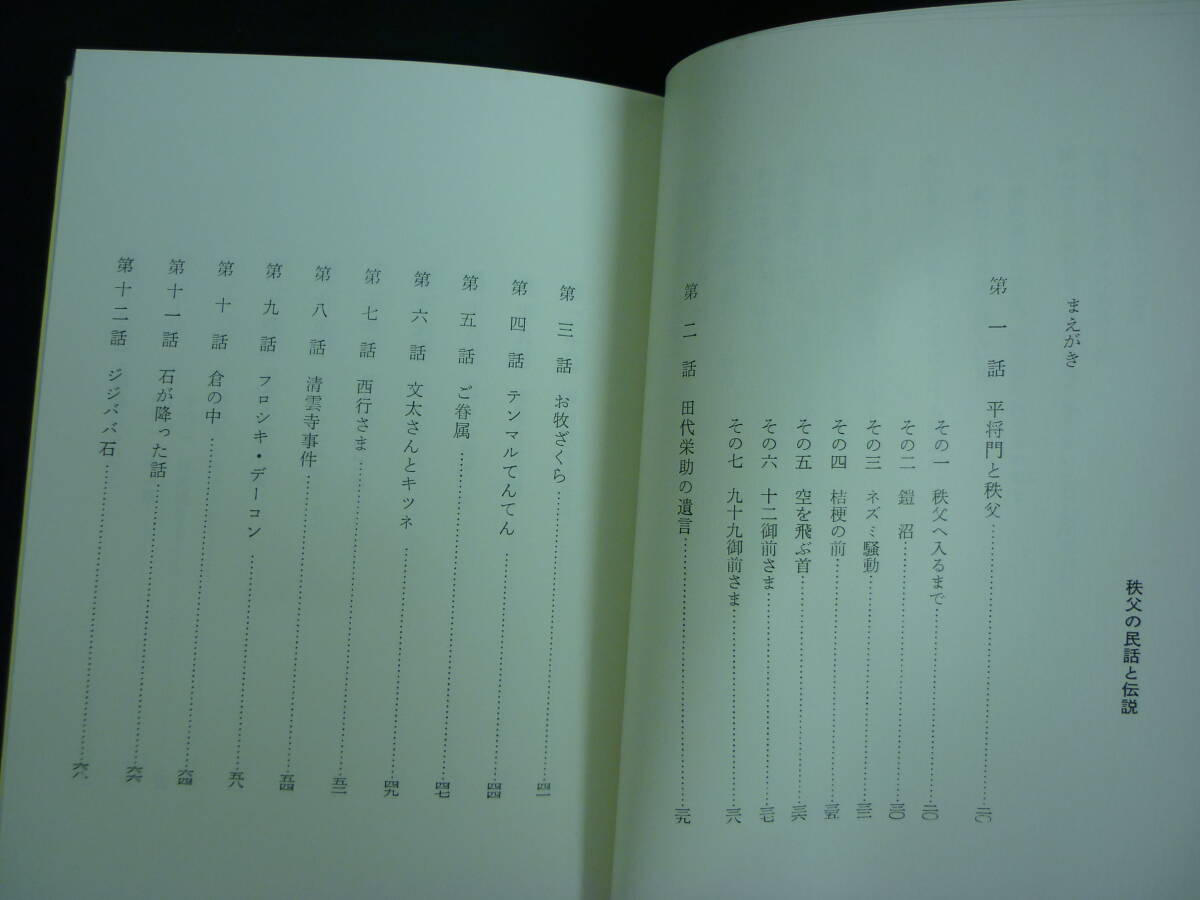 秩父の民話と伝説
まえがき
第一話 平将門と秩父……二〇
その一 秩父へ入るまで……二〇
その二 鎧沼……三〇
その三 ネズミ騒動……三二
その四 桔梗の前……三五
その五 空を飛ぶ首……三六
その六 十二御前さま……三七
その七 九十九御前さま……三八
第二話 田代栄助の遺言……三九
第三話 お牧ざくら……四一
第四話 テンマルてんてん……四四
第五話 ご眷属……四七
第六話 文太さんとキツネ……四九
第七話 西行さま……五二
第八話 清雲寺事件……五四
第九話 フロシキ・デーコン……五八
第十話 倉の中……六四
第十一話 石が降った話……六六
第十二話 ジジババ石……六八